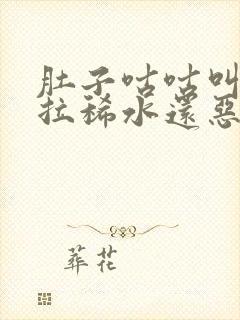 肚子咕咕叫
拉稀水還惡
葬花